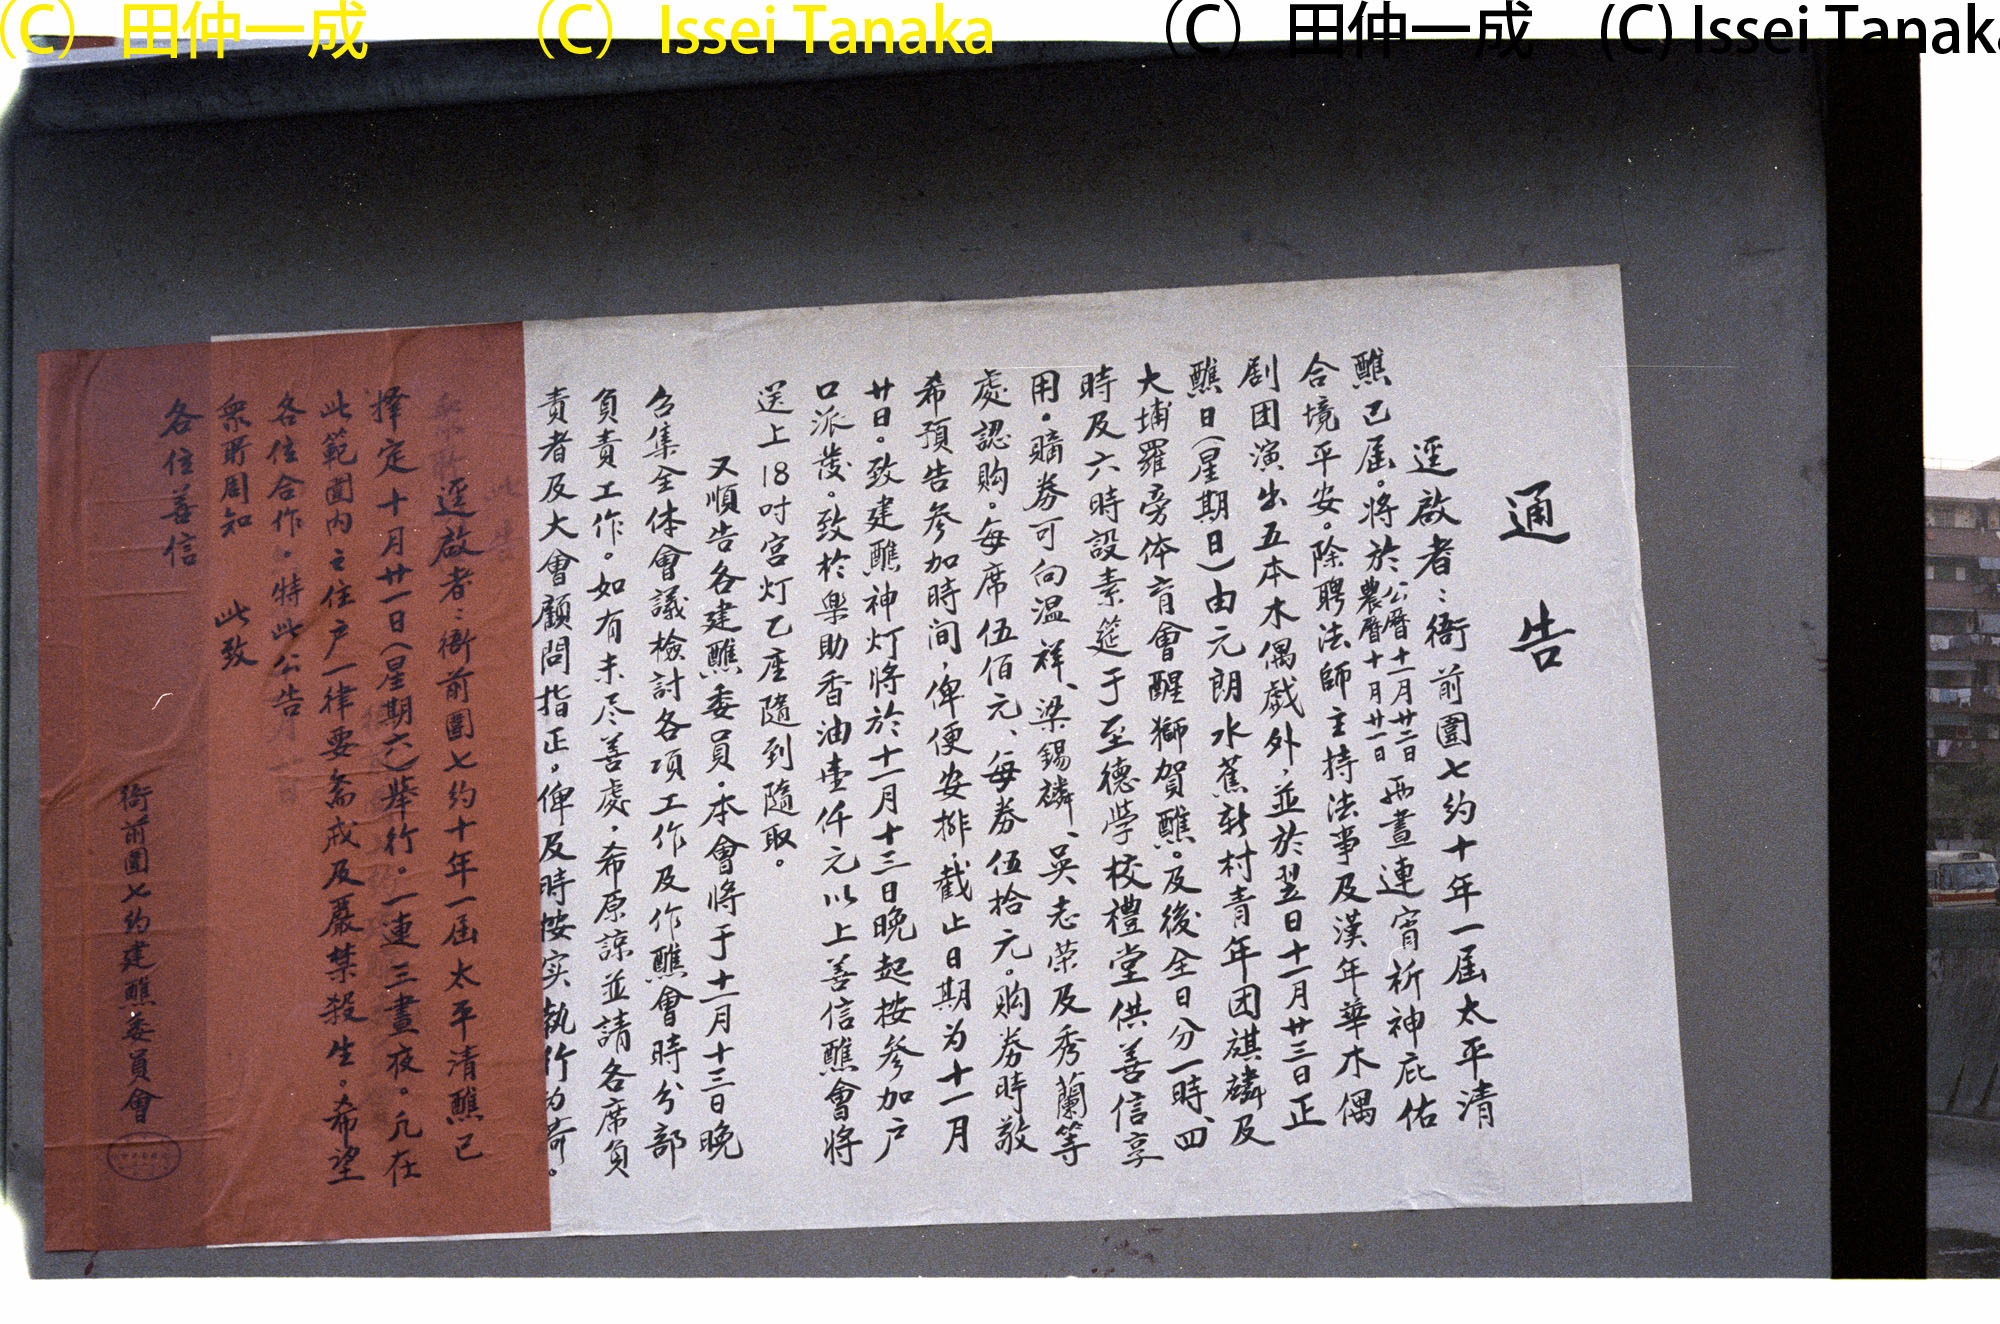 （C） 田仲一成
（C） Issei Tanaka
（C） 田仲一成
(C) Issei Tanaka
通告
逕啟者：衙前圍七約十年一屆太平清
醮已屆。將於公曆十一月廿二日農曆十月廿一日兩晝連宵祈神庇佑
合境平安。除聘法師主持法事及漢年華木偶
剧团演出五本木偶戲外，並於翌日十一月廿三日正
醮日（星期日）由元朗水蕉新村青年团麒麟及
大埔羅旁体育會醒獅賀醮。及後全日分一時、四
時及六時設素筵于至德學校禮堂供善信享
用。膳券可向温祥、梁錫麟、吳志荣及秀蘭等
處認购。每席伍佰元、每券伍拾元。购券時敬
希預告參加時间，俾便安排，截止日期为十一月
廿日。致建醮神灯將於十一月十三日晚起按參加户
口派發。致於樂助香油壹仟元以上善信醮會將
送上18吋宫灯乙座隨到隨取。
又順告各建醮委員，本會將于十一月十三日晚
召集全体會議檢討各項工作及作醮會時分部
負責工作。如有未尽善處，希原諒並請各席負
責者及大會顧問指正。俾及時按实執行为荷。
逕啟者：衙前圍七約十年一屆太平清醮已
擇定十月廿一日（星期六）舉行。一連三晝夜。凡在
此範圍內之住户一律要斋戒及嚴禁殺生。希望
各住合作。特此公告
衆所周知 此致
各住善信
衙前圍七約建醮委員會